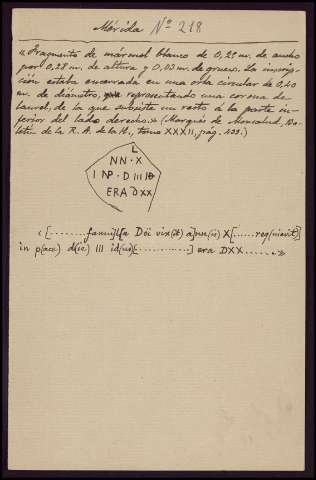 Mérida Nº 218
« Fragmento de mármol blanco de 0,29 m. de ancho
por 0,28 m. de altura y 0,03 m. de grueso. La inscrip-
ción estaba encerrada en una orla circular de 0,40
m. de diámetro, representando una corona de
laurel, de la que subsiste un resto á la parte in-
ferior del lado derecho. » (Marqués de Monsalud, Bo-
letín de la R. A. de la H., tomo XXXII, pág.
L
NN · X
I NP · D III ID
ERA D XX
« [........famu]l[a Dei vix(it) a]nn(is) X[......req(uievit)]
in p(ace) d(ie) III id(us)[............] era DXX...... »